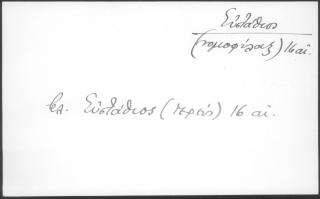 Εὐστάθιος
(νομοφύλαξ) 16 αἰ.
βλ. Εὐστάθιος (ἱερεύς) 16 αἰ.